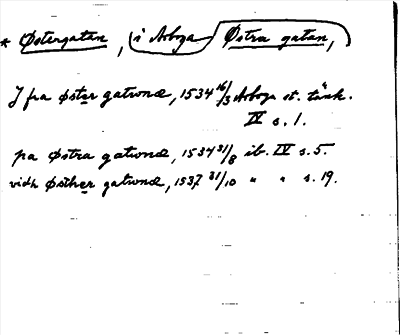 * Östergatan, i Arboga Östra gatan,
J fra øster gatwonæ, 1534 16/3 Arboga st. tänk.
IV s. 1.
pa Østra gatwonæ, 1534 31/8 ib. IV s. 5.
vidh Østher gatwonæ, 1537 31/10 " " s. 19.